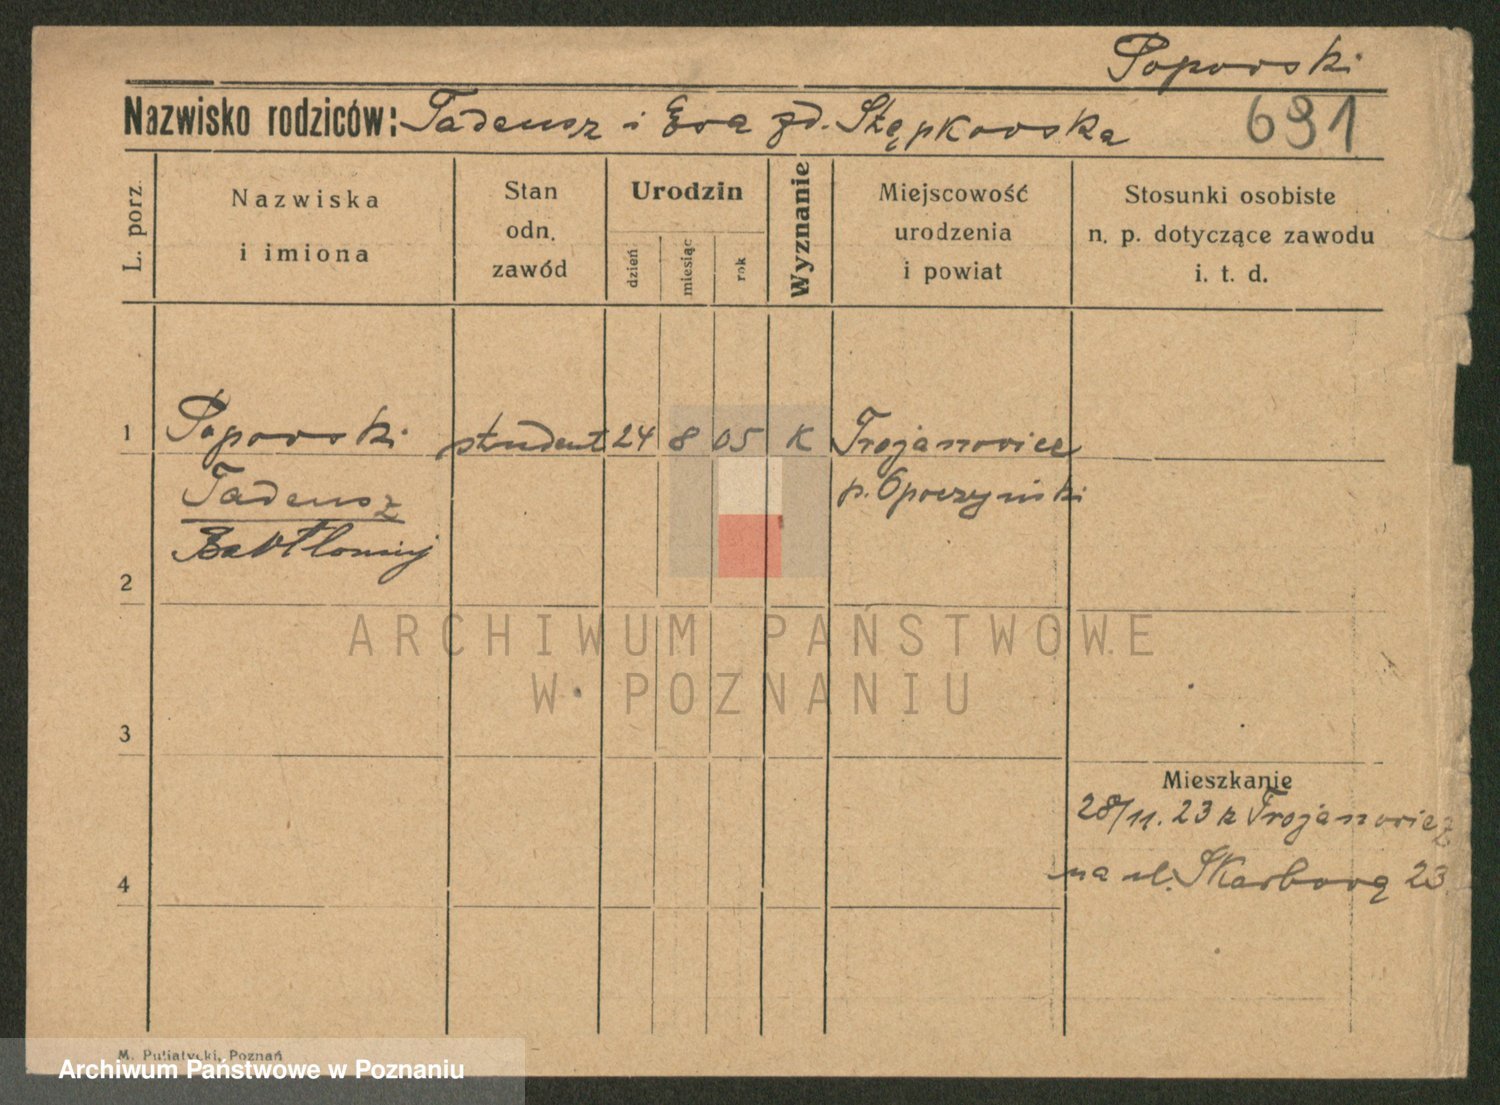 Poporski
Nazwisko rodziców: Tadeusz i Ewa zd. Stępkowska
691
L. porz.
Nazwiska
i imiona
Stan
odn.
zawód
Urodzin
dzień
miesiąc
rok
Wyznanie
Miejscowość
urodzenia
i powiat
Stosunki osobiste
n. p. dotyczące zawodu
i. t. d.
1 Poporski student 24 8 05 K Trojanowice
Tadeusz p. Opoczyński
Bartłomiej
2
ARCHIWUM PAŃSTWOWE
W POZNANIU
3
Mieszkanie
28/11. 23 z Trojanowic
na ul. Skarbową 23
4
M. Putiatycki, Poznań
Archiwum Państwowe w Poznaniu